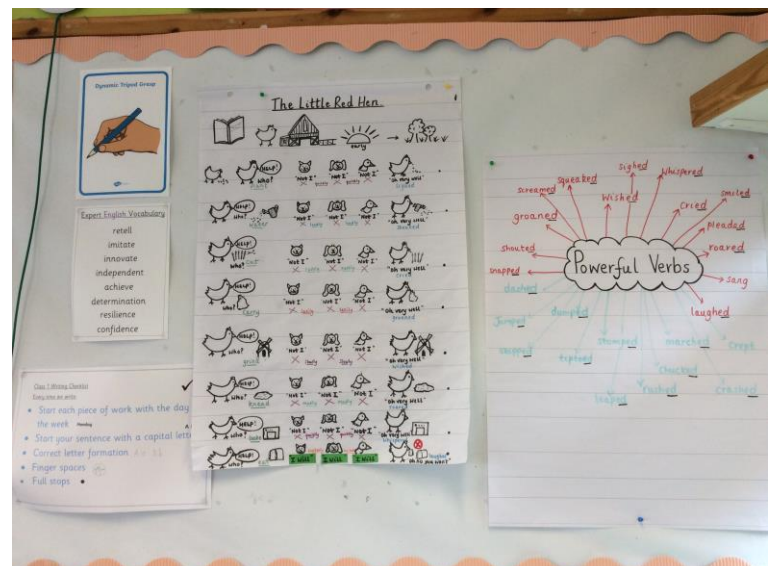 Dynamic Tripod Group
Expert English Vocabulary
retell
imitate
innovate
independent
achieve
determination
resilience
confidence
Class 1 Writing
Every time we write
Start each piece of work with the day
the week Monday
Start your sentence with a capital lett
Correct letter formation
Finger spaces
Full stops
The Little Red Hen
early
HELP!
Who? "Not I" "Not I" "Not I" "oh very well"
HELP!
Who? "Not I" "Not I" "Not I" "oh very well"
HELP!
cut
Who? "Not I" "Not I" "Not I" "oh very well"
HELP!
Who? "Not I" "Not I" "Not I" "oh very well"
carry
HELP!
Who? "Not I" "Not I" "Not I" "oh very well"
grind
HELP!
Who? "Not I" "Not I" "Not I" "oh very well"
knead
HELP!
Who? "Not I" "Not I" "Not I" "oh very well"
HELP!
Who? "I will" "I will" "I will"
Powerful Verbs
screamed
squeaked
sighed
whispered
smiled
groaned
wished
cried
pleaded
shouted
roared
snapped
sang
laughed
dashed
jumped
dumped
stomped
marched
crept
skipped
tiptoed
leaped
rushed
crashed